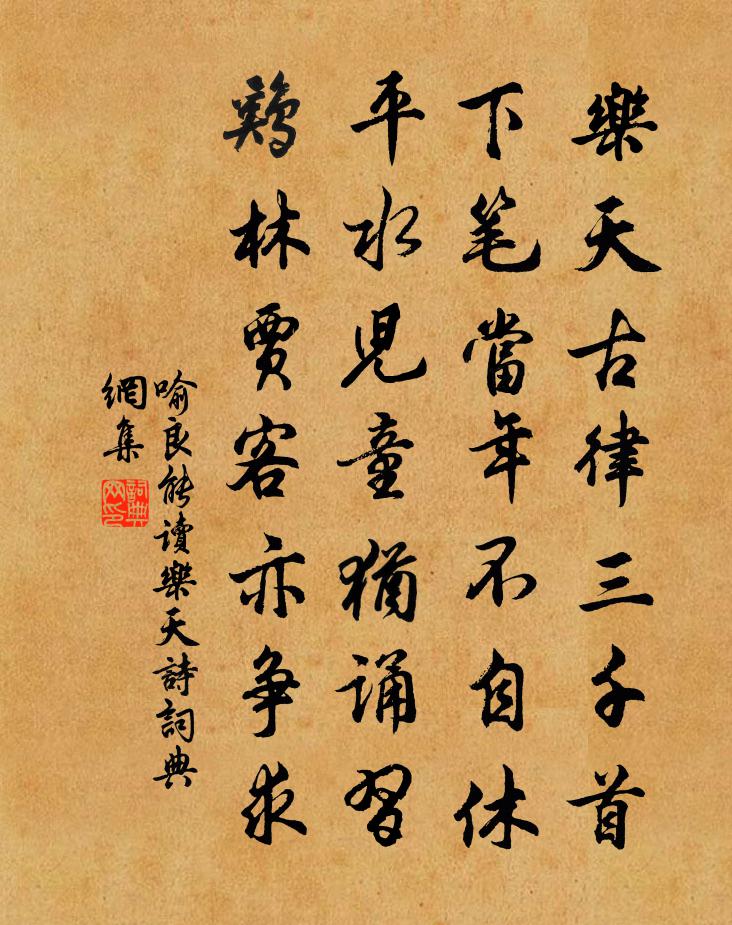 樂天古律三千首
下笔當年不自休
平水児童猶誦習
鷄林賈客亦争求
喻良能讀樂天詩詞典
網集
詞典
网印